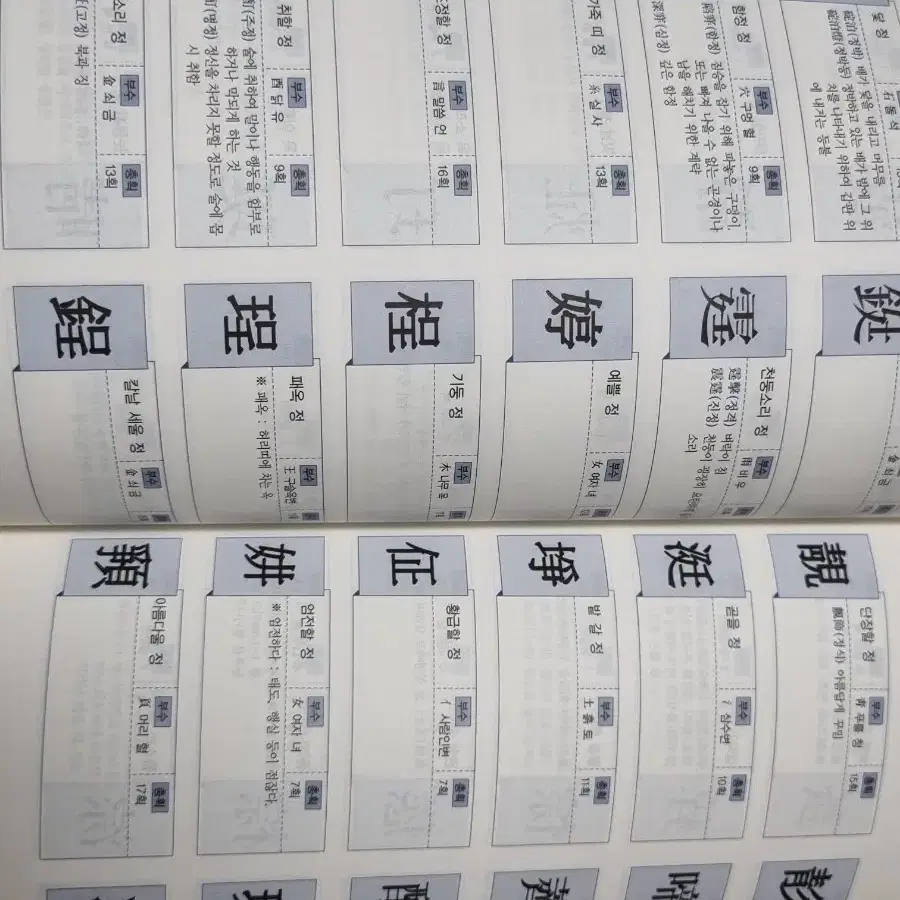 닻 정
石 돌 석
碇泊(정박) 배가 닻을 내리고 머무름
함정 정
부수
穴 구멍 혈
총획
9획
陷穽(함정) 짐승을 잡기 위해 파놓은 구덩이.
또는 빠져 나올 수 없는 곤경이나
남을 해치기 위한 계략
深穽(심정) 깊은 함정
가죽 띠 정
부수
糸 실 사
총획
13획
부수
言 말씀 언
총획
16획
취할 정
부수
酉 닭 유
총획
9획
(주정) 술에 취하여 말이나 행동을 함부로
하거나 막되게 하는 것
(명정) 정신을 차리지 못할 정도로 술에 몹
시 취함
소리 정
부수
金 쇠 금
총획
13획
(고정) 북과 징
鋌
金 쇠 금
霆
천둥소리 정
부수
雨 비 우
霆擊(정격) 벼락이 침
震霆(진정) 천둥이 굉장히 요란하게
소리
婷
예쁠 정
부수
女 여자 녀
桯
기둥 정
부수
木 나무 목
珵
패옥 정
부수
王 구슬옥변
※ 패옥 : 허리띠에 차는 옥
鋥
칼날 세울 정
부수
金 쇠 금
靚
단장할 정
부수
靑 푸를 청
총획
15획
靚飾(정식) 아름답게 꾸밈
涏
곧을 정
부수
氵 삼수변
총획
10획
埩
밭 갈 정
부수
土 흙 토
총획
11획
佂
황급할 정
부수
亻 사람인변
총획
7획
妌
엄전할 정
부수
女 여자 녀
총획
7획
※ 엄전하다 : 태도, 행실 등이 점잖다.
아름다울 정
부수
頁 머리 혈
총획
17획